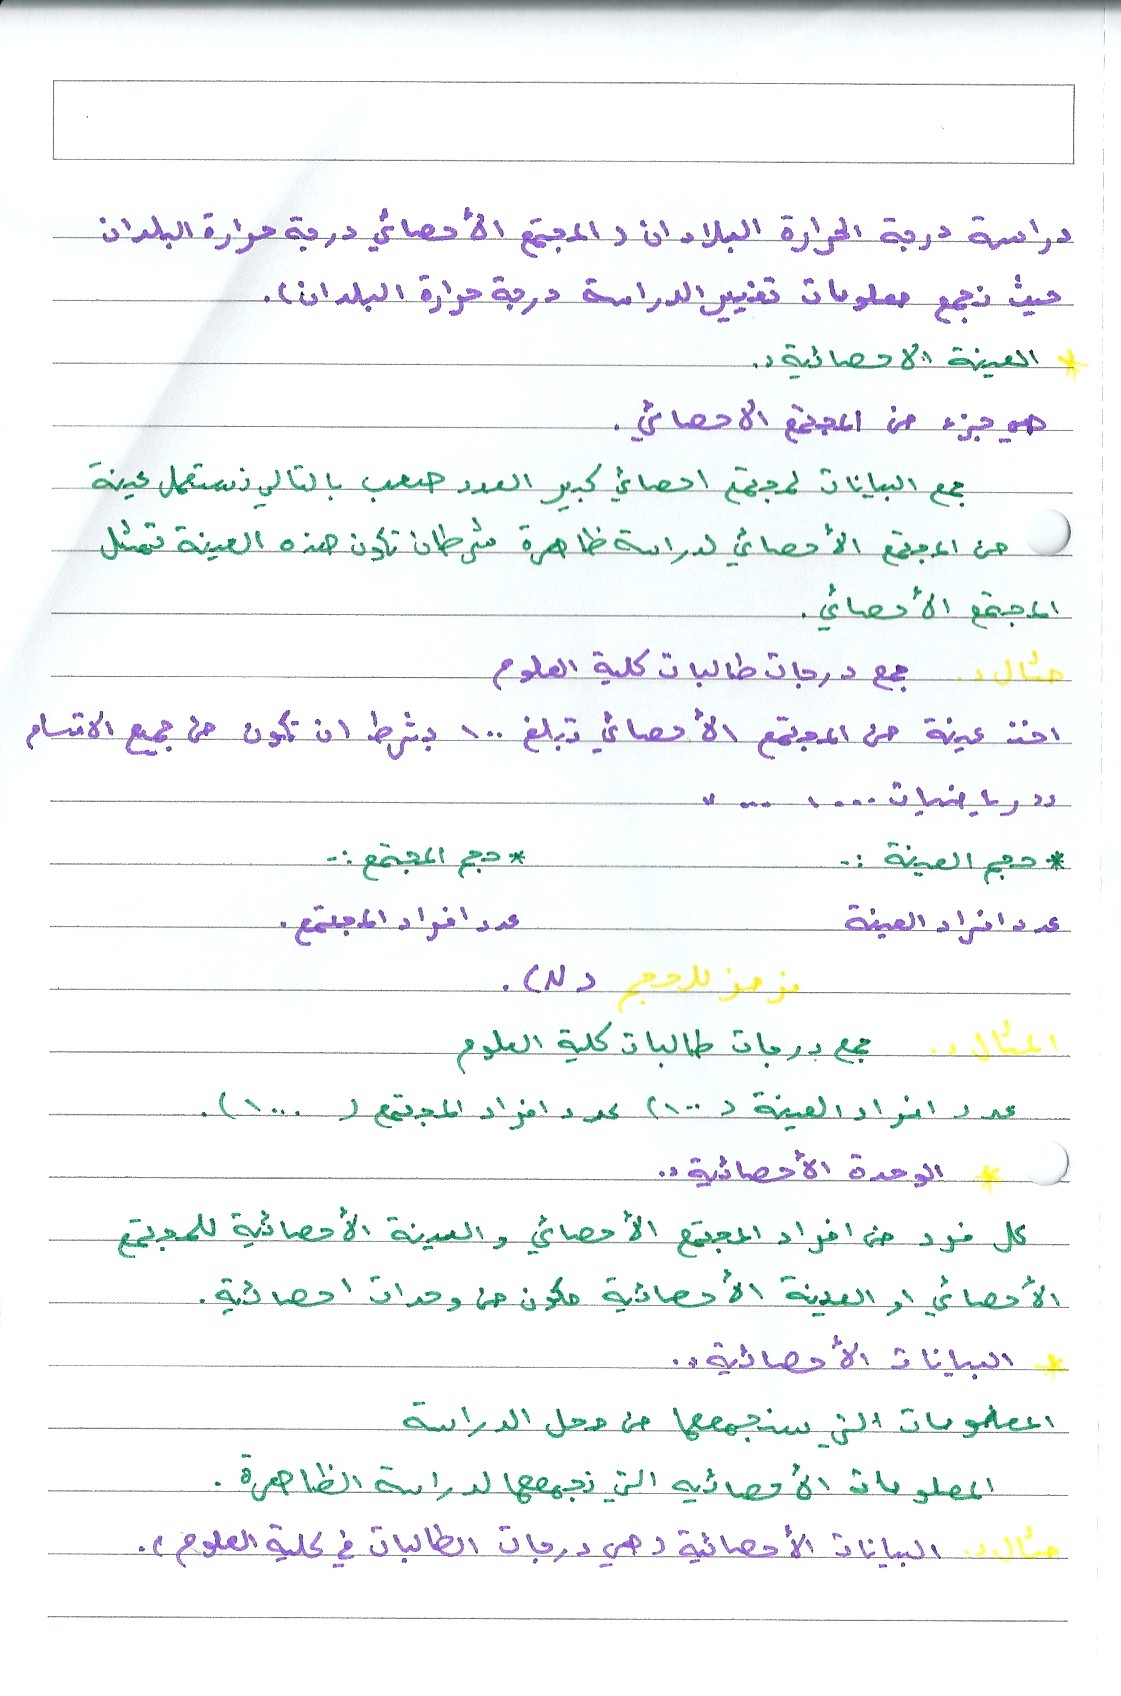 دراسة درجة الحرارة البلادان ( المجتمع الأحصائي درجة حرارة البلدان
حيث نجمع معلومات تغيير الدراسة درجة حرارة البلدان).
* العينة الاحصائية :.
هي جزء من المجتمع الاحصائي .
جمع البيانات لمجتمع احصائي كبير العدد صعب بالتالي نستعمل عينة
من المجتمع الأحصائي لدراسة ظاهرة شرطان تكون هذه العينة تمثل
المجتمع الأحصائي .
مثال :. جمع درجات طالبات كلية العلوم
اخذ عينة من المجتمع الأحصائي تبلغ ١٠٠ بشرط ان تكون من جميع الاقسام
رياضيات ....
* حجم العينة :- * حجم المجتمع :-
عدد افراد العينة عدد افراد المجتمع .
نرمز للحجم ( N ) .
المثال :. جمع درجات طالبات كلية العلوم
عدد افراد العينة ( ١٠٠ ) عدد افراد المجتمع ( ١٠٠٠ ) .
* الوحدة الأحصائية :.
كل فرد من افراد المجتمع الأحصائي والعينة الأحصائية للمجتمع
الأحصائي او العينة الأحصائية مكون من وحدات احصائية .
* البيانات الأحصائية :.
المعلومات التي سنجمعها من محل الدراسة
المعلومات الأحصائيه التي نجمعها لدراسة الظاهرة .
مثال :. البيانات الأحصائية ( هي درجات الطالبات في كلية العلوم ) .